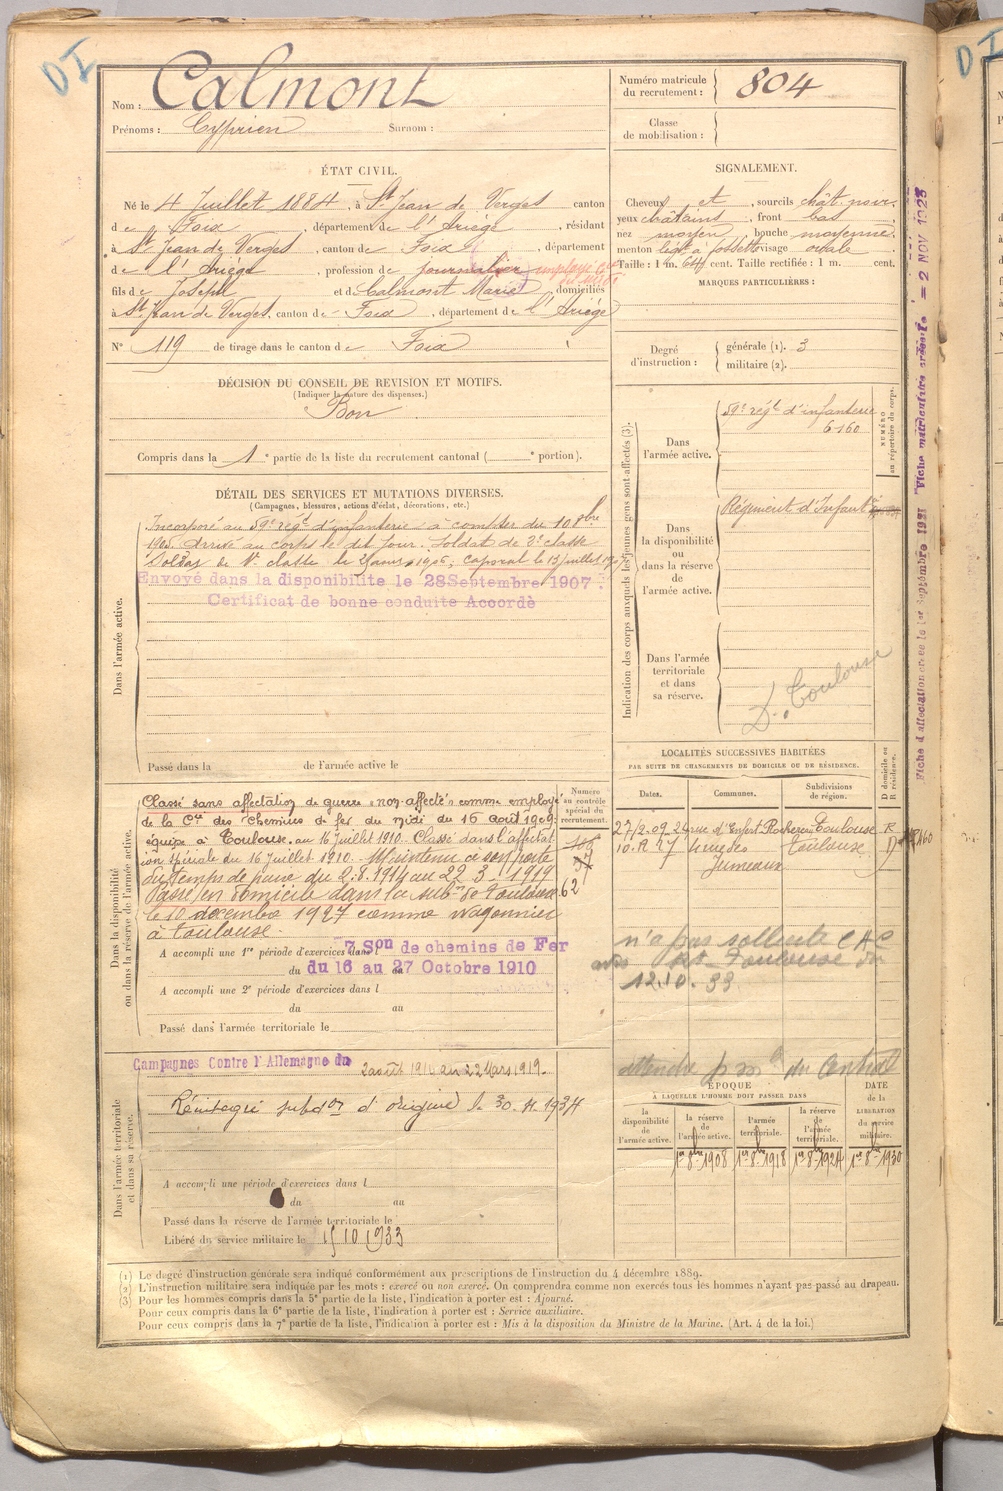 DI
Nom : Calmont
Prénoms : Cyprien Surnom :
Numéro matricule du recrutement : 804
Classe de mobilisation :
ÉTAT CIVIL.
Né le 4 Juillet 1884, à St Jean de Verges canton
de Foix, département de l'Ariège, résidant
à St Jean de Verges, canton de Foix, département
de l'Ariège, profession de journalier employé
fils de Joseph et de Calmont Marie domiciliés
à St Jean de Verges, canton de Foix, département de l'Ariège
No 119 de tirage dans le canton de Foix
SIGNALEMENT.
Cheveux et, sourcils chât. noir.
yeux châtains, front bas
nez moyen, bouche moyenne.
menton visage ovale
Taille : 1 m. 64 cent. Taille rectifiée : 1 m. cent.
MARQUES PARTICULIÈRES :
Degré d'instruction : générale (1). 3
militaire (2).
DÉCISION DU CONSEIL DE REVISION ET MOTIFS.
(Indiquer la nature des dispenses.)
Bon
Compris dans la 1e partie de la liste du recrutement cantonal ( e portion).
DÉTAIL DES SERVICES ET MUTATIONS DIVERSES.
(Campagnes, blessures, actions d'éclat, décorations, etc.)
Dans l'armée active.
Incorporé au 59e régt d'infanterie à compter du 10 8bre
1905. Arrivé au corps le dit jour. Soldat de 2e classe
Soldat de 1e classe le 1906, Caporal le 13 juillet
Envoyé dans la disponibilite le 28 Septembre 1907.
Certificat de bonne conduite Accordè
Passé dans la de l'armée active le
Indication des corps auxquels les jeunes gens sont affectés (3).
Dans l'armée active.
59e régt d'infanterie
6160
NUMÉRO au répertoire du corps.
Dans la disponibilité ou dans la réserve de l'armée active.
Régiment d'Infant
Dans l'armée territoriale et dans sa réserve.
Toulouse
Dans la disponibilité ou dans la réserve de l'armée active.
Numéro au contrôle spécial du recrutement.
Classé sans affectation de guerre "non-affecté" comme employé
de la Cie des chemins de fer du Midi du 16 août 1909.
équipe à Toulouse, au 16 Juillet 1910. Classé dans l'affectat
ion spéciale du 16 Juillet 1910. Maintenu à son poste
du temps de paix du 2.8.1914 au 22.3.1919
Passé en domicile dans la subon de Toulouse 62
le 10 décembre 1927 comme wagonnier
à Toulouse.
A accompli une 1re période d'exercices dans l 7 Son de chemins de Fer
du 16 au 27 Octobre 1910
A accompli une 2e période d'exercices dans l
du au
Passé dans l'armée territoriale le
LOCALITÉS SUCCESSIVES HABITÉES
PAR SUITE DE CHANGEMENTS DE DOMICILE OU DE RÉSIDENCE.
Dates. Communes. Subdivisions de région. D domicile ou R résidence.
27/2.09 24 rue d'Enfert Rochereau Toulouse R
10.12.27 Toulouse D
Jumeaux
n'a pas sollicité CAC
Toulouse du
12.10.33
Dans l'armée territoriale et dans sa réserve.
Campagnes Contre l'Allemagne du 2 août 1914 au 22 Mars 1919.
Réintegré subdon d'origine le 30.4.1934
A accompli une période d'exercices dans l
du au
Passé dans la réserve de l'armée territoriale le
Libéré du service militaire le 15 10 1933
du Central
ÉPOQUE
À LAQUELLE L'HOMME DOIT PASSER DANS
la disponibilité de l'armée active. la réserve de l'armée active. l'armée territoriale. la réserve de l'armée territoriale. DATE de la LIBÉRATION du service militaire.
1er 8bre 1908 1er 8bre 1918 1er 8bre 1924 1er 8bre 1930
(1) Le degré d'instruction générale sera indiqué conformément aux prescriptions de l'instruction du 4 décembre 1889.
(2) L'instruction militaire sera indiquée par les mots : exercé ou non exercé. On comprendra comme non exercés tous les hommes n'ayant pas passé au drapeau.
(3) Pour les hommes compris dans la 5e partie de la liste, l'indication à porter est : Ajourné.
Pour ceux compris dans la 6e partie de la liste, l'indication à porter est : Service auxiliaire.
Pour ceux compris dans la 7e partie de la liste, l'indication à porter est : Mis à la disposition du Ministre de la Marine. (Art. 4 de la loi.)
Fiche d'affectation créée le 1er Septembre 1931 "Fiche matriculaire créée le = 2 NOV 1925
DI